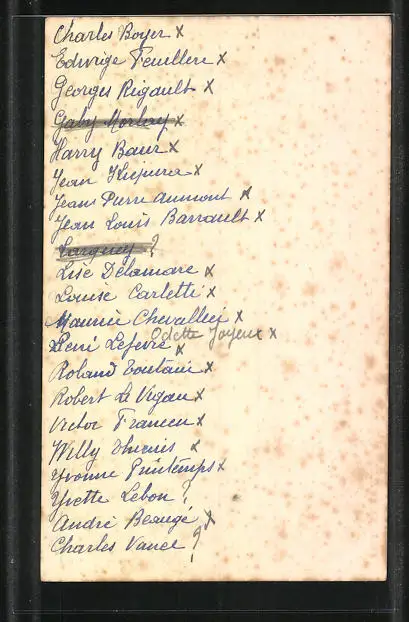 Charles Boyer x
Edwige Feuillere x
Georges Rigault x
Gaby Morlay x
Harry Baur x
Jean Kiepura x
Jean Pierre Aumont x
Jean Louis Barrault x
?
Lise Delamare x
Louise Carletti x
Maurice Chevallier x
Odette Joyeux x
René Lefevre x
Roland Toutain x
Robert Le Vigan x
Victor Francen x
Willy x
Yvonne Printemps x
Yvette Lebon ?
André Beaugé x
Charles Vanel ?